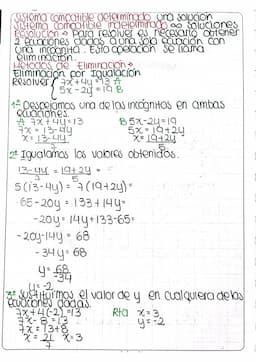 Sistema compatible determinado una solución
Sistema compatible indeterminado ∞ soluciones
Resolución → Para resolver es necesario obtener
2 ecuaciones dadas a una sola ecuación con
una incógnita. Esta operación se llama
eliminación.
Métodos de Eliminación →
Eliminación por Igualación
Resolver { 7x + 4y = 13 A
5x - 2y = 19 B
1º Despejamos una de las incógnitas en ambas
ecuaciones.
A 7x + 4y = 13 B 5x - 2y = 19
7x = 13 - 4y 5x = 19 + 2y
x = 13 - 4y / 7 x = 19 + 2y / 5
2º Igualamos los valores obtenidos.
13 - 4y / 7 = 19 + 2y / 5 =
5(13 - 4y) = 7(19 + 2y) =
65 - 20y = 133 + 14y =
-20y = 14y + 133 - 65 =
-20y - 14y = 68
-34y = 68
y = 68 / -34
y = -2
3º Sustituimos el valor de y en cualquiera de las
ecuaciones dadas.
7x + 4(-2) = 13 Rta x = 3
7x - 8 = 13 y = -2
7x = 13 + 8
x = 21 / 7 x = 3